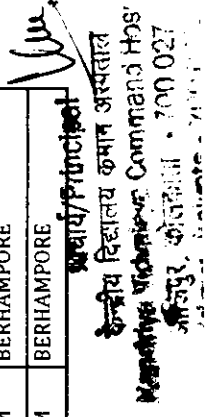 M BERHAMPORE
M BERHAMPORE
प्राचार्य/Principal
केन्द्रीय विद्यालय कमान अस्पताल
Kendriya Vidyalaya Command Hos'
अलिपुर, कोलकाता - 700 027